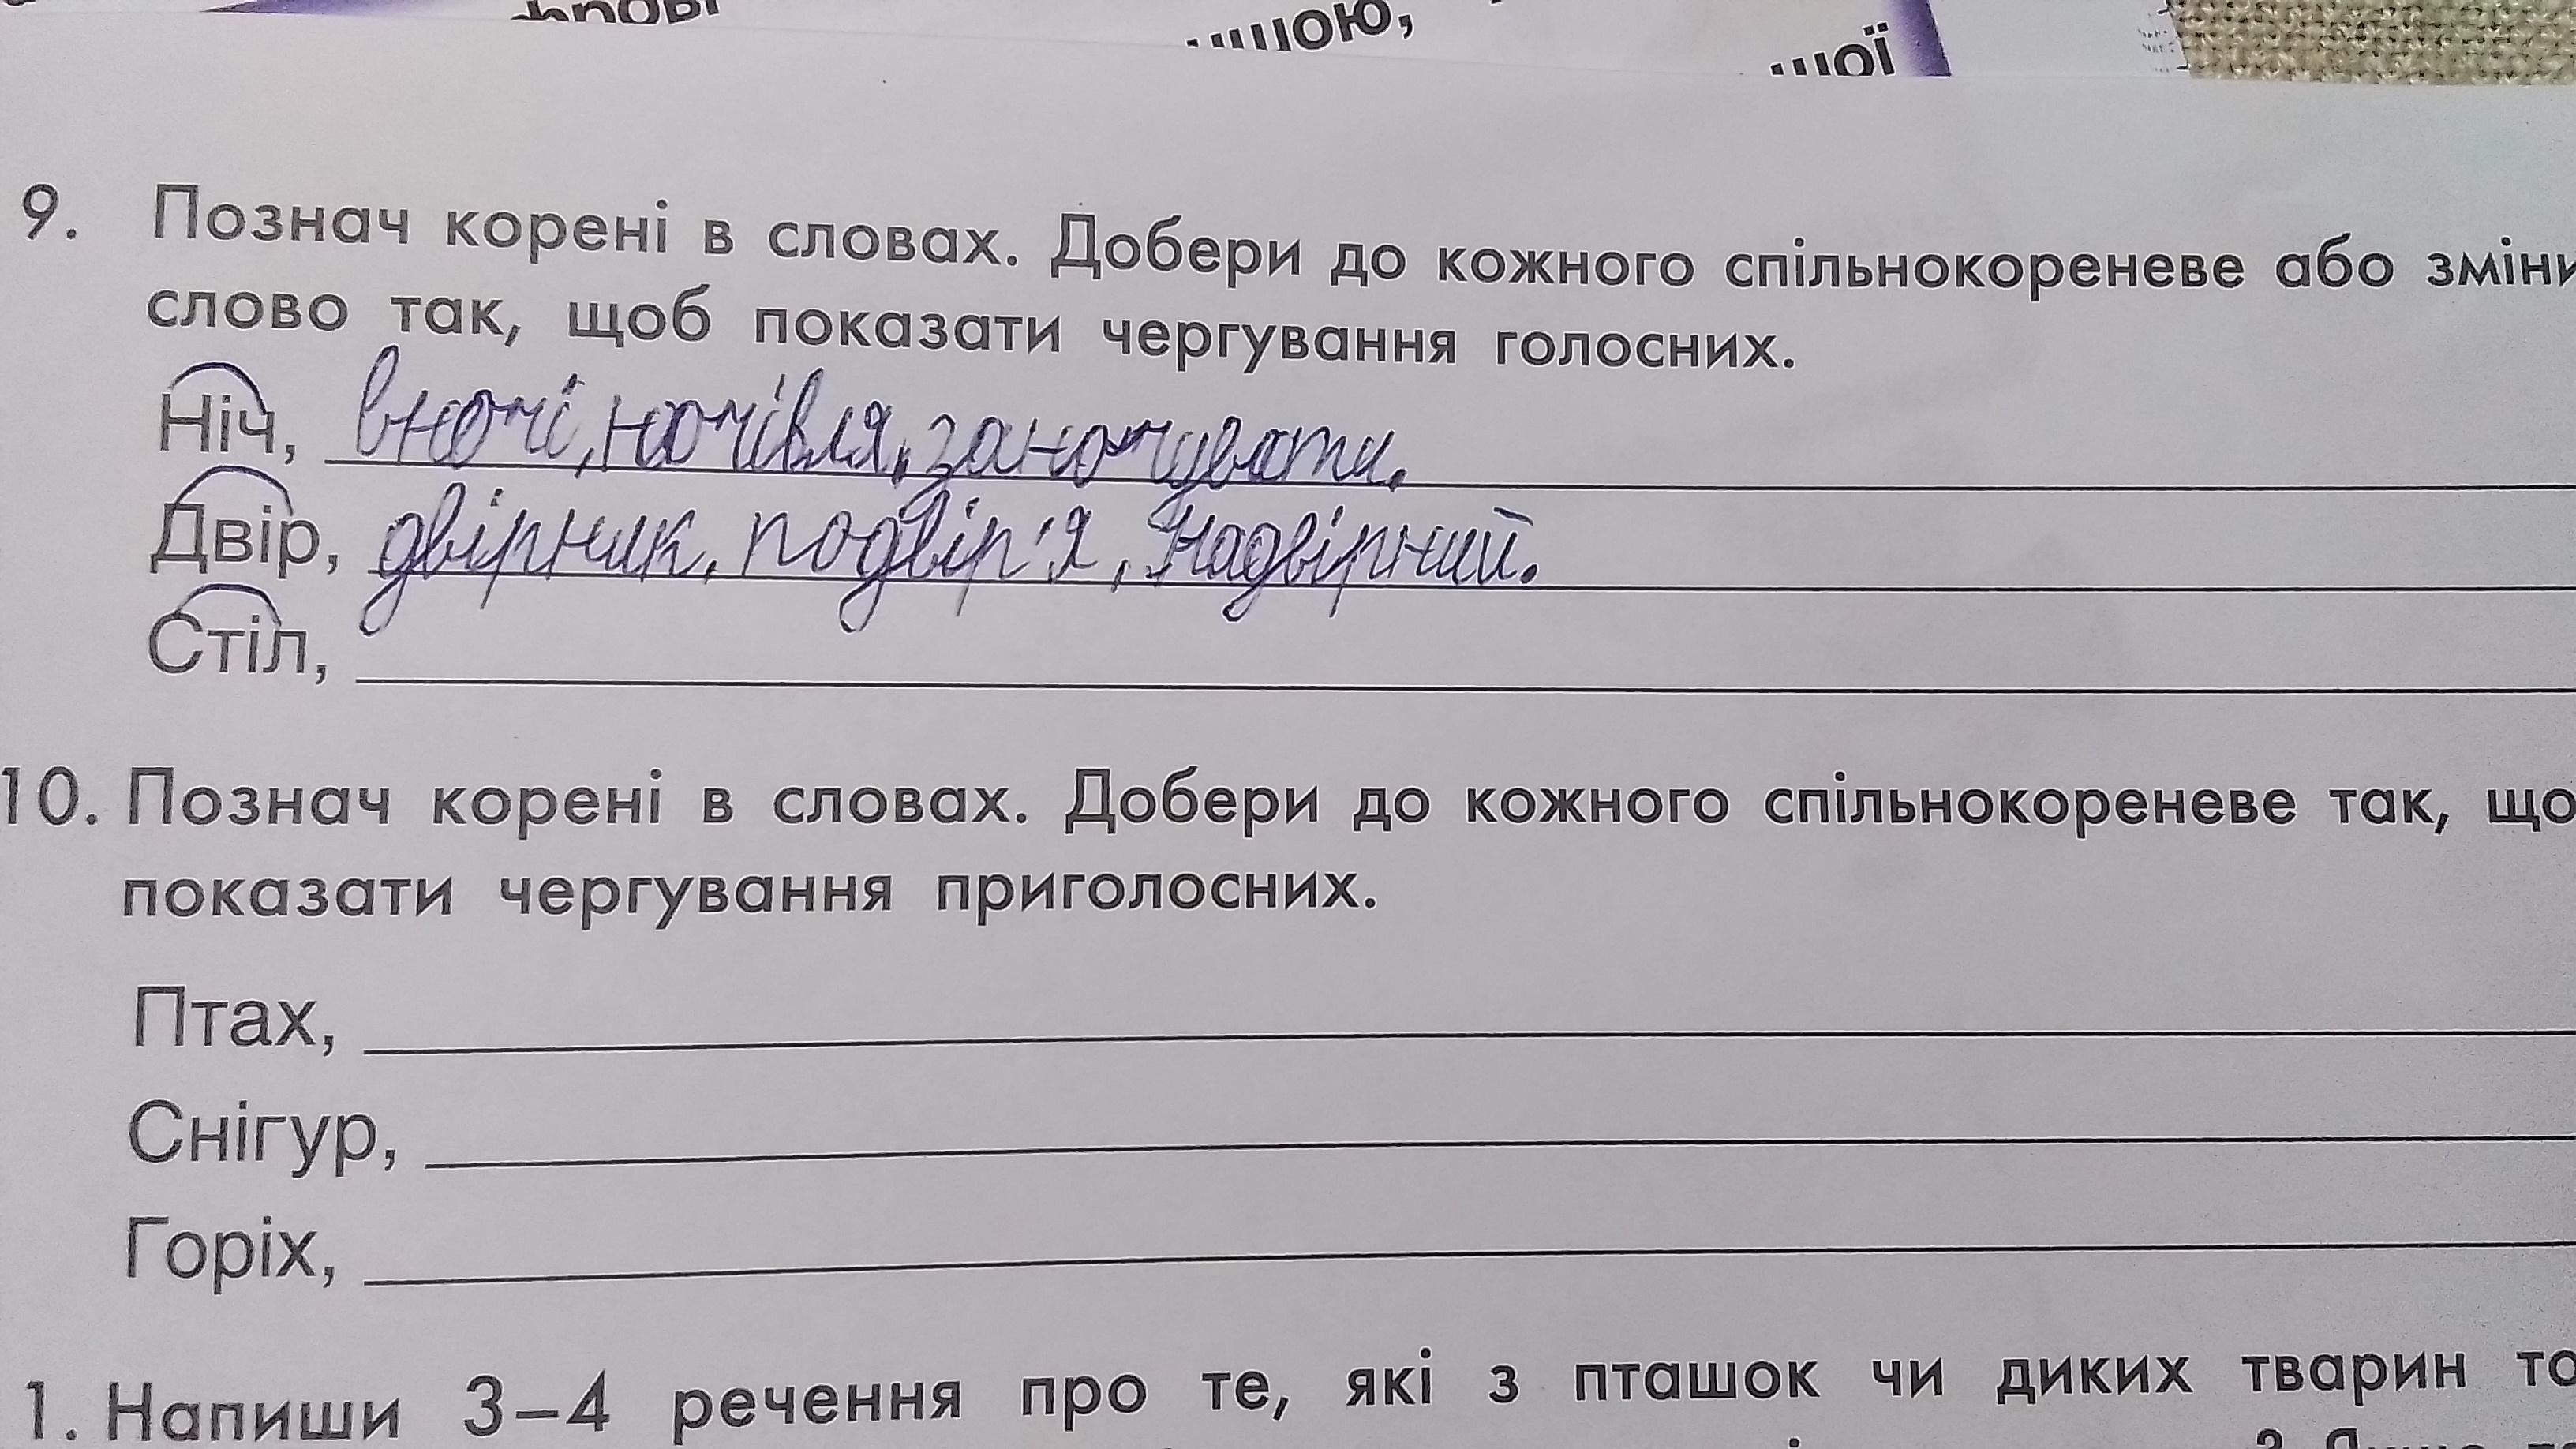 9. Познач корені в словах. Добери до кожного спільнокореневе або зміни
слово так, щоб показати чергування голосних.
Ніч, вночі, ночівля, заночувати.
Двір, двірник, подвір'я, надвірний.
Стіл,
10. Познач корені в словах. Добери до кожного спільнокореневе так, що
показати чергування приголосних.
Птах,
Снігур,
Горіх,
1. Напиши 3–4 речення про те, які з пташок чи диких тварин то